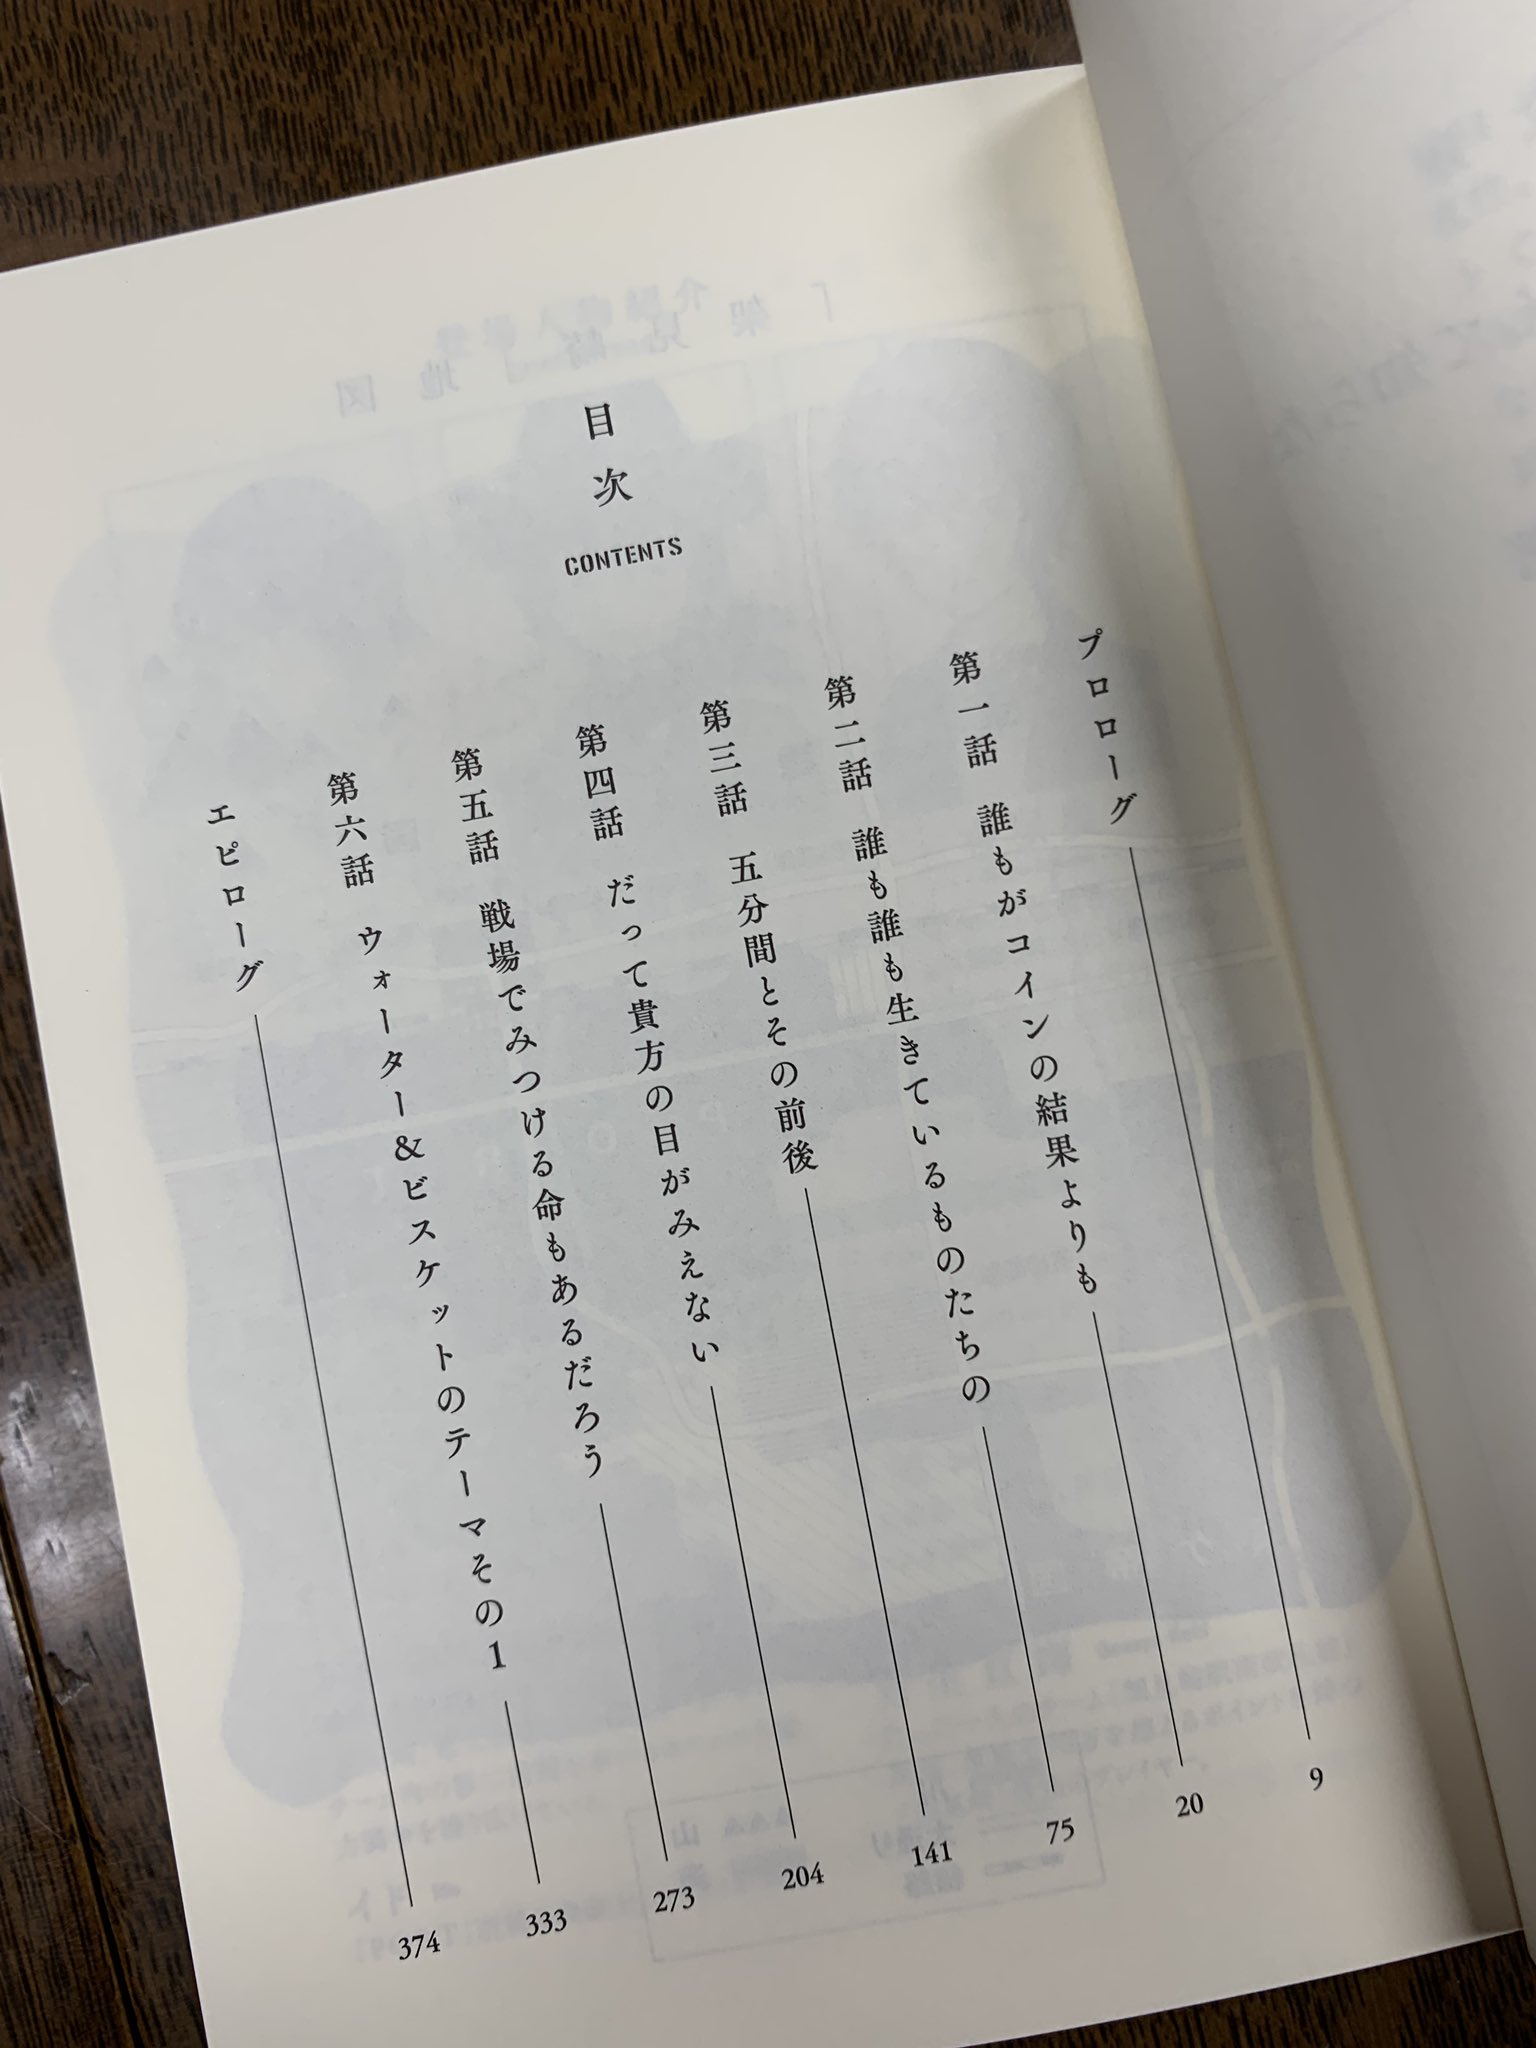 目次
CONTENTS
プロローグ 9
第一話 誰もがコインの結果よりも 20
第二話 誰も誰も生きているものたちの 75
第三話 五分間とその前後 141
第四話 だって貴方の目がみえない 204
第五話 戦場でみつける命もあるだろう 273
第六話 ウォーター&ビスケットのテーマその1 333
エピローグ 374